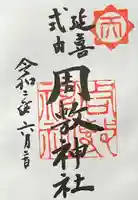 延喜
式内
周敷神社
令和二年六月